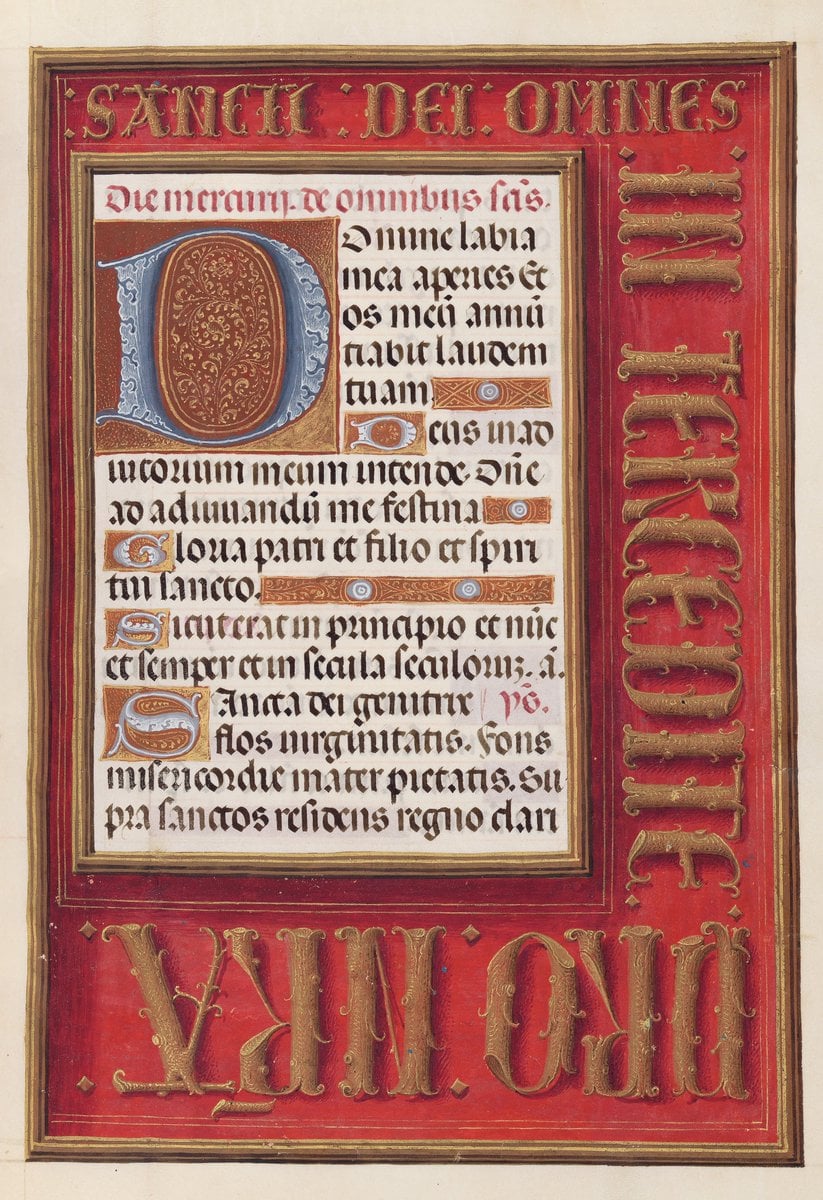 ·SANCTI·DEI·OMNES
·IN TERCEDITE·
·PRO·NRĀ·
Die mercurij. de omnibus sc̄is.
Domine labia
mea aperies Et
os meū annū
tiabit laudem
tuam.
Deus in ad
iutorium meum intende. Dn̄e
ad adiuuandū me festina
Gloria patri et filio et spiri
tui sancto.
Sicut erat in principio et nūc
et semper et in secula seculoruꝫ. ā.
Sancta dei genitrix p̄s.
flos uirginitatis. Fons
misericordie mater pietatis. Su
pra sanctos residens regno clari